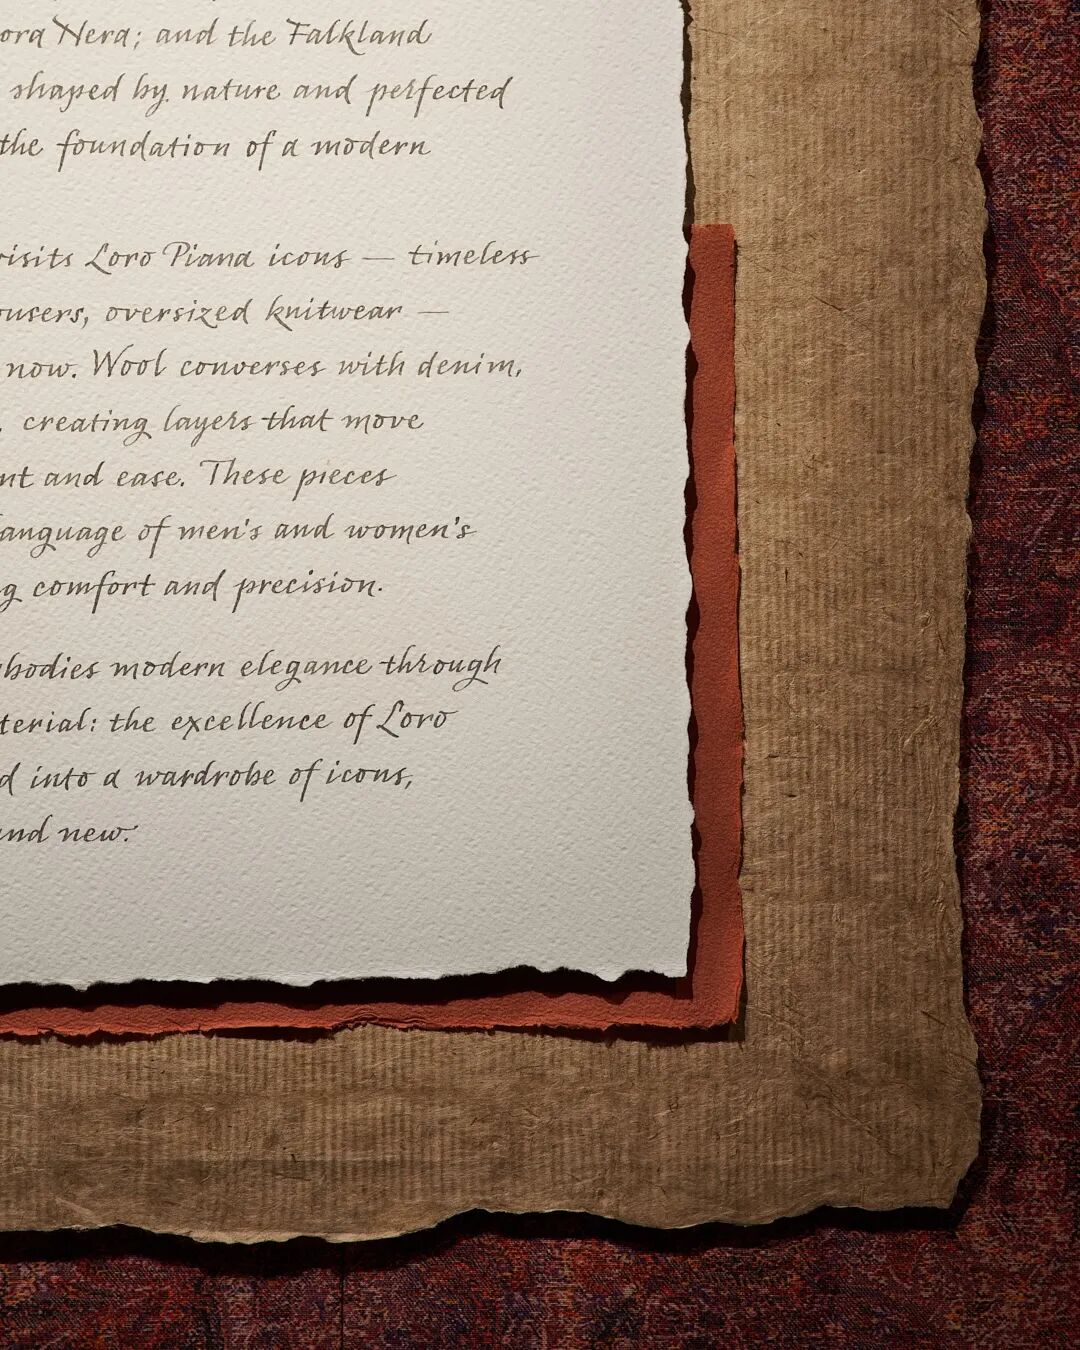 Nera; and the Falkland
shaped by nature and perfected
the foundation of a modern
Loro Piana icons — timeless
oversized knitwear —
now. Wool converses with denim,
creating layers that move
and ease. These pieces
language of men's and women's
comfort and precision.
modern elegance through
the excellence of Loro
into a wardrobe of icons,
and new.